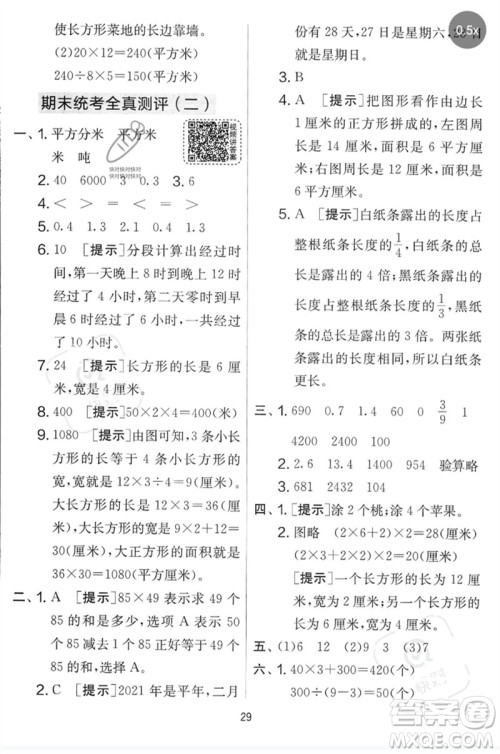 使长方形菜地的长边靠墙。
(2)20×12=240(平方米)
240÷8×5=150(平方米)
期末统考全真测评(二)
视频讲答案
一、1. 平方分米 平方米
米 吨
快对快对快对
快对快对快对
2. 40 6000 3 0.3 3. 6
4. < > = >
5. 0.4 1.3 0.6 1.3
6. 10 [提示]分段计算出经过时
间,第一天晚上 8 时到晚上 12
时经过了 4 小时,第二天零时到早
晨 6 时经过了 6 小时,一共经过
了 10 小时。
7. 24 [提示]长方形的长是 6 厘
米,宽是 4 厘米。
8. 400 [提示]50×2×4=400(米)
9. 1080 [提示]由图可知,9 个小长
方形的长等于 4 个小长方形的长
加 12 个小长方形的宽,所以小长
方形的宽是 12×3÷4=9(厘米)。
大长方形的长是 9×4=36(厘
米),大长方形的宽是 12+9×2=
30(厘米),大正方形的面积就是
36×30=1080(平方厘米)
二、1. A [提示]85×49 表示求 49 个
85 的和是多少,选项 A 表示 50 个
85 减去 1 个 85 正好等于 49 个
85 的和,选择 A。
2. C [提示]2021 年是平年,二月
份有 28 天,27 日是星期六,28 日
就是星期日。
0.5x
3. B
4. A [提示]把图形看作由边长
为 2 厘米的正方形拼成的,一共
有 12 条边,每条边的长度是 2 厘
米,周长是 24 厘米。
5. A [提示]白纸条露出的长度占
整根纸条长度的1/4,白纸条的总长
是露出的 4 倍;黑纸条露出的长
度占整根纸条长度的1/3,黑纸条
的总长是露出的 3 倍。两张纸条
露出的长度相等,所以白纸条比
黑纸条长。
三、1. 690 0.7 1.4 60 0 3/9 1
4200 2400
2. 2.6 13.4 1400 960 验算略
3. 681 2432 1494
四、1. [提示]涂 2 个桃;涂 4 个苹果。
2. 图略 (2×6+2)×2=28(厘米)
(2×3+2×2)×2=20(厘米)
[提示]一个长方形的长是 12 厘
米,宽为 2 厘米;另一个长方形的
长是 6 厘米,宽为 4 厘米。
五、(1)6 12 (2)9 3 (3)
六、1. 40×3+300=420(个)
(240+300)÷3=180(个)
29
答案圈
MXQE.COM